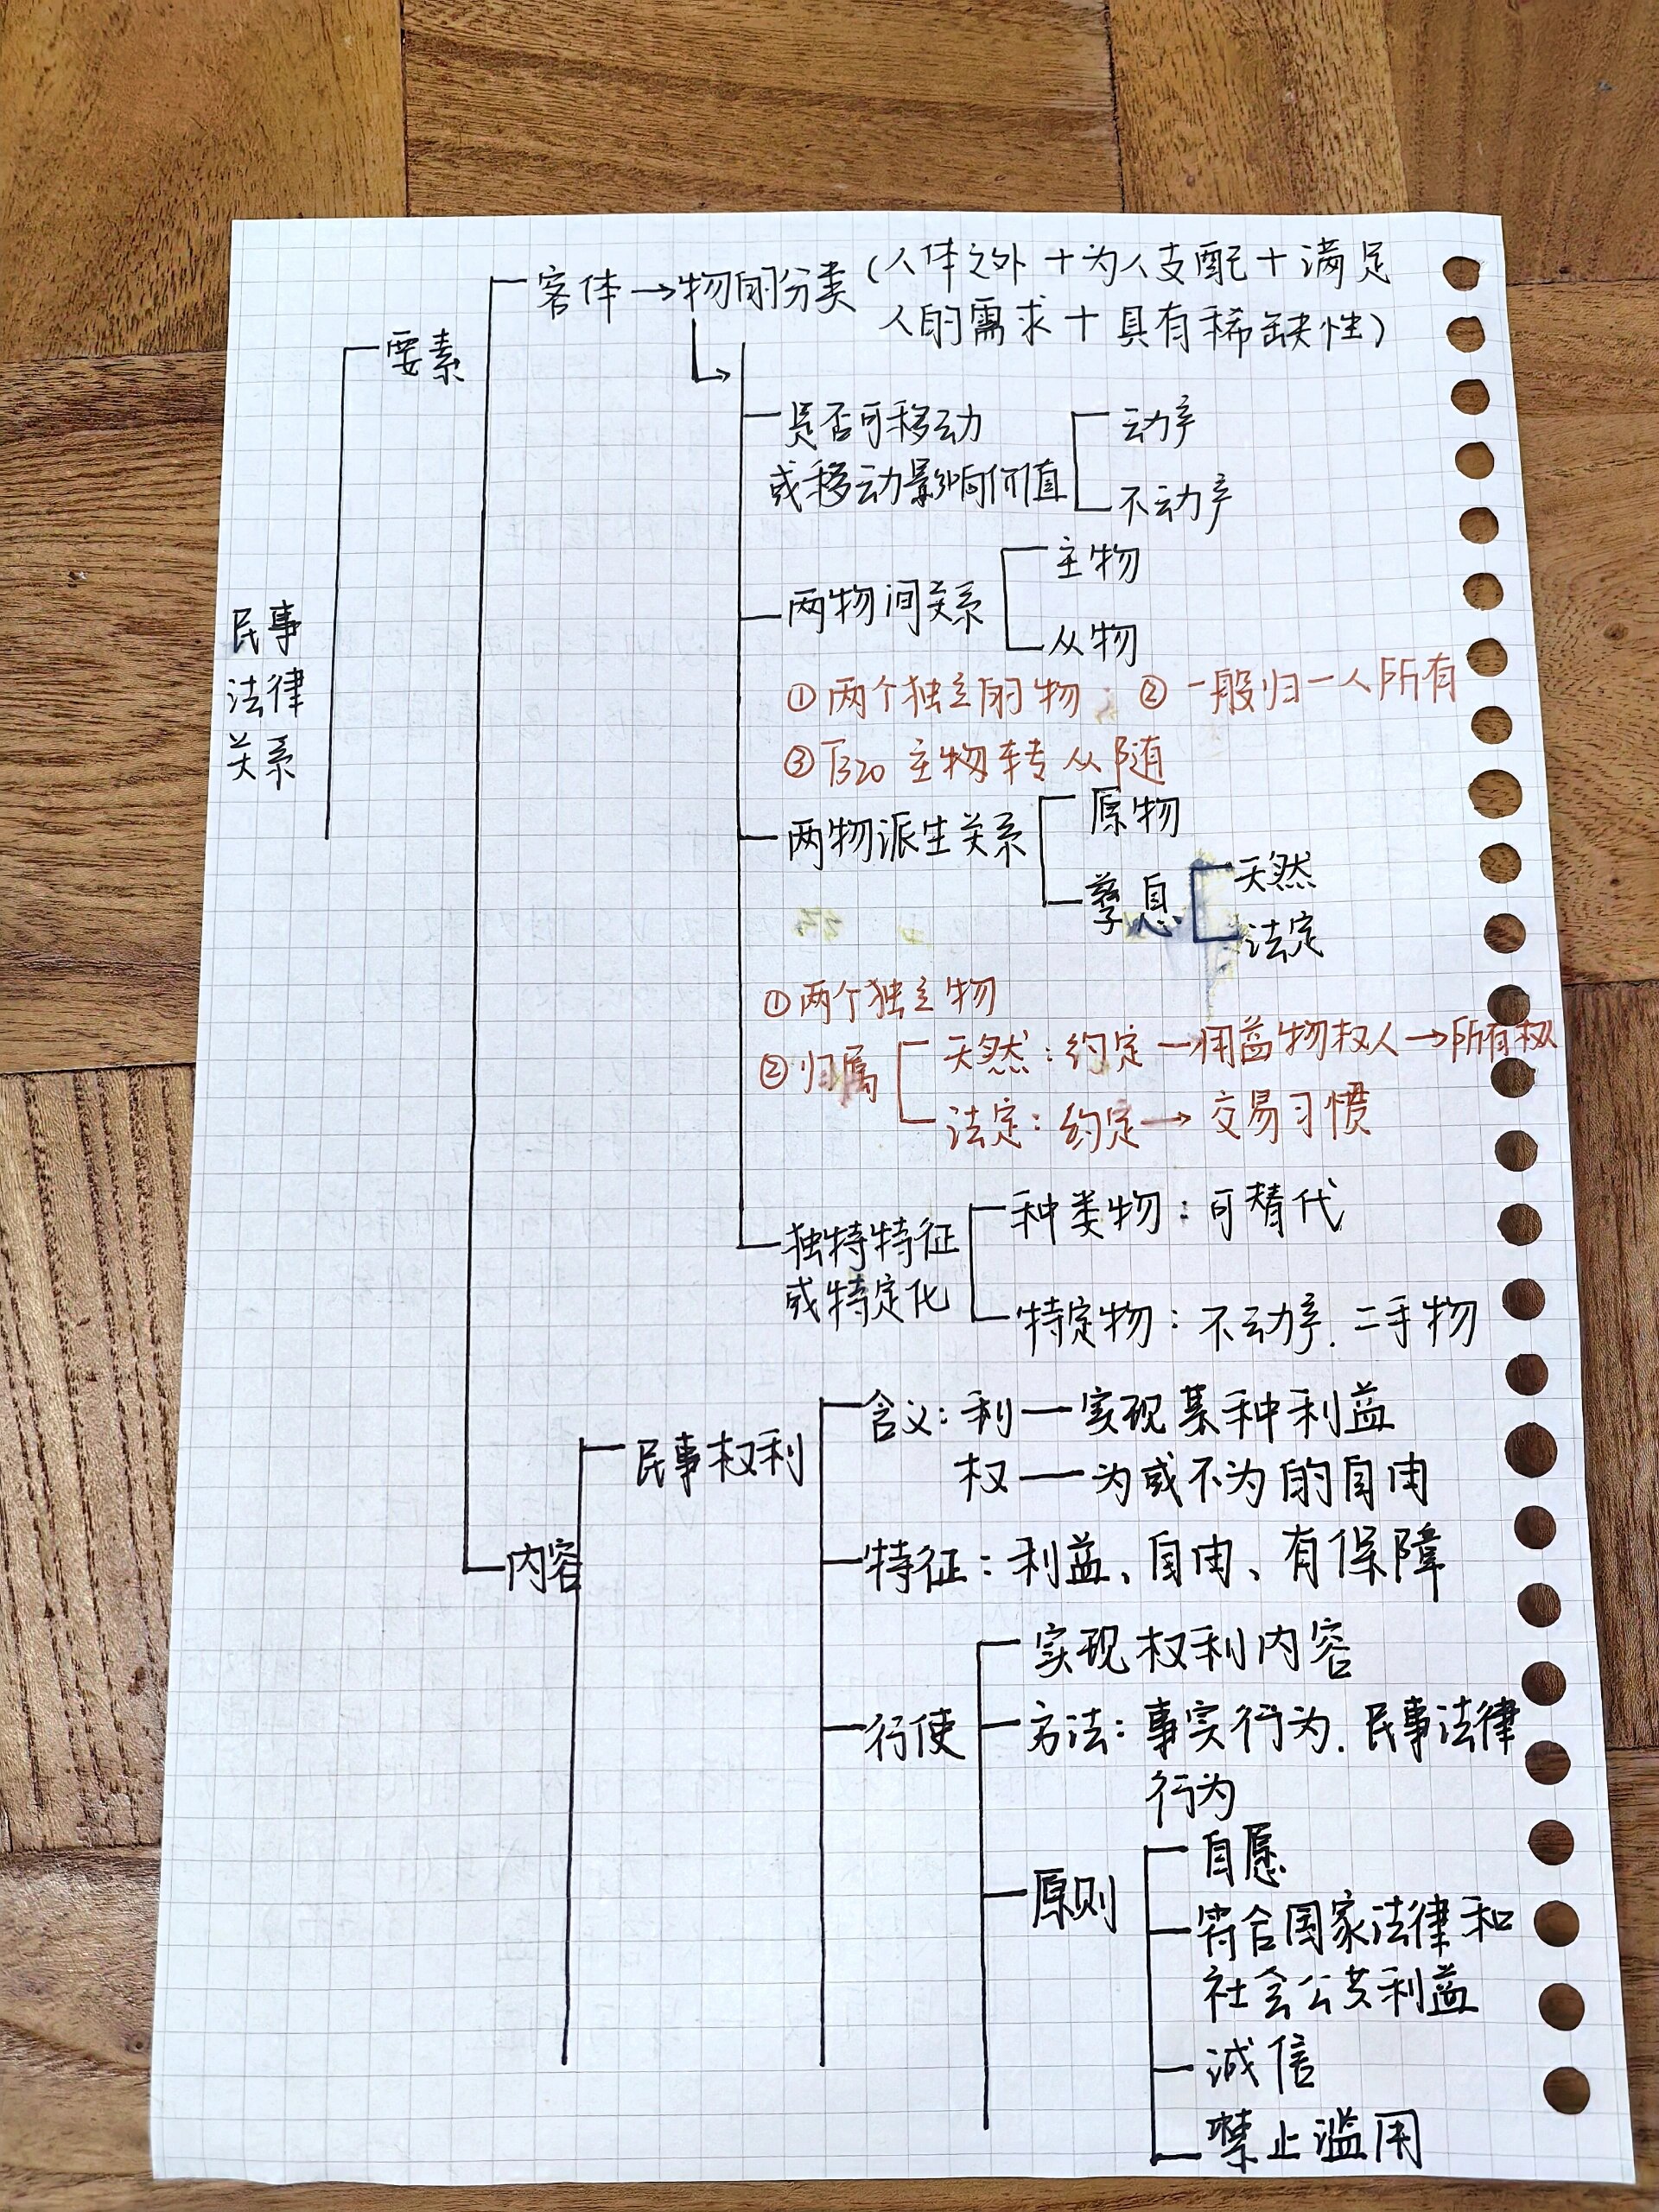 客体→物的分类(人体之外+为人支配+满足
人的需求+具有稀缺性)
要素
是否可移动
或移动影响价值
动产
不动产
两物间关系
主物
从物
民事
法律
关系
①两个独立的物 ②一般归一人所有
③§320 主物转从随
两物派生关系
原物
孳息
天然
法定
①两个独立物
②归属
天然:约定—用益物权人→所有权人
法定:约定→交易习惯
独特特征
或特定化
种类物:可替代
特定物:不动产.二手物
民事权利
含义:利—实现某种利益
权—为或不为的自由
内容
特征:利益、自由、有保障
行使
实现权利内容
方法:事实行为.民事法律
行为
原则
自愿
符合国家法律和
社会公共利益
诚信
禁止滥用